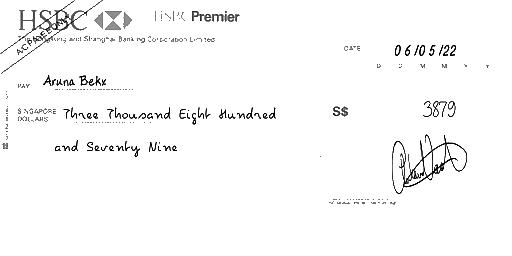 HSBC HSBC Premier
The Hongkong and Shanghai Banking Corporation Limited
ACPAYEEONLY
DATE 06/05/22
D D M M Y Y
PAY Aruna Bekx
SINGAPORE DOLLARS Three Thousand Eight Hundred
and Seventy Nine
S$ 3879